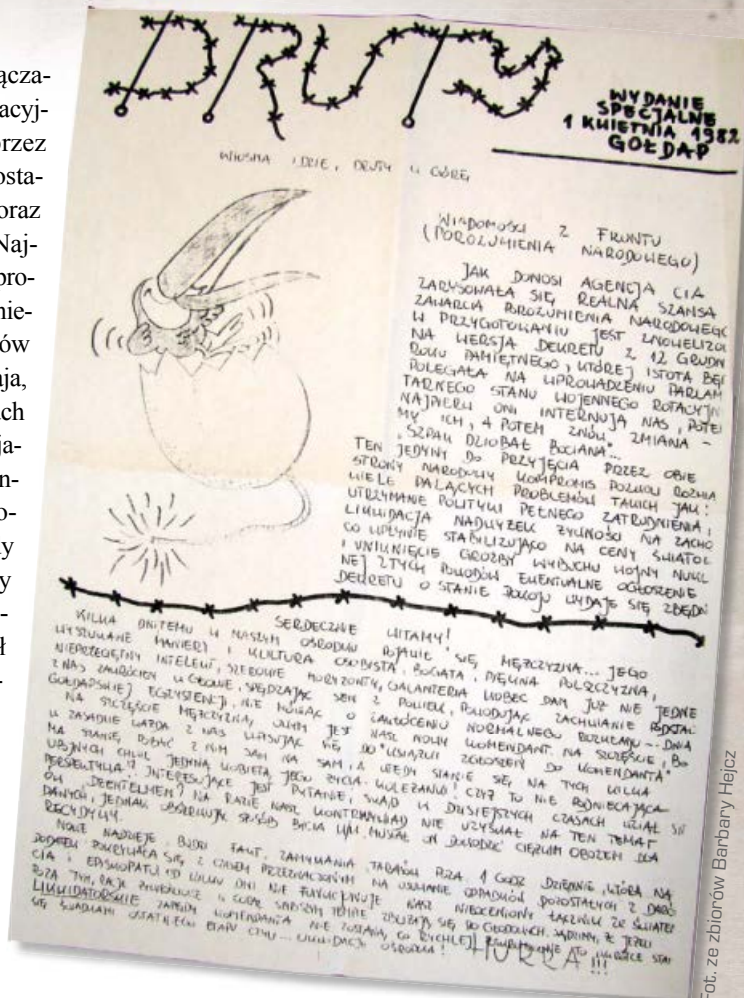 ącza-
acyj-
rzez
osta-
oraz
Naj-
pro-
nie-
ów
aja,
ach
ja-
n-
o-
ły
y
-
ł
-
DRUTY
WYDANIE
SPECJALNE
1 KWIETNIA 1982
GOŁDAP
WIOSNA IDZIE, DRUTY W GÓRĘ
WIADOMOŚCI Z FRONTU
(POROZUMIENIA NARODOWEGO)
JAK DONOSI AGENCJA CIA
ZARYSOWAŁA SIĘ REALNA SZANSA
ZAWARCIA POROZUMIENIA NARODOWEGO
W PRZYGOTOWANIU JEST ZNOWELIZO
NA WERSJA DEKRETU Z 12 GRUDN
ROKU PAMIĘTNEGO, KTÓREJ ISTOTA BĘ
POLEGAŁA NA WPROWADZENIU PARLAM
TARNEGO STANU WOJENNEGO ROTACYJN
NAJPIERW ONI INTERNUJĄ NAS, POTE
MY ICH, A POTEM ZNÓW ZMIANA -
"SZPAK DZIOBAŁ BOCIANA"...
TEN JEDYNY DO PRZYJĘCIA PRZEZ OBIE
STRONY NARODOWY KOMPROMIS POZWOLI ROZWIĄ
WIELE PALĄCYCH PROBLEMÓW TAKICH JAK:
UTRZYMANIE POLITYKI PEŁNEGO ZATRUDNIENIA,
LIKWIDACJA NADWYŻEK ŻYWNOŚCI NA ZACHO
CO WPŁYNIE STABILIZUJĄCO NA CENY ŚWIATOW
I UNIKNIĘCIE GROŹBY WYBUCHU WOJNY NUKL
NEJ Z TYCH POWODÓW EWENTUALNE OGŁOSZENIE
DEKRETU O STANIE POKOJU WYDAJE SIĘ ZBĘDN
SERDECZNIE WITAMY!
KILKA DNI TEMU W NASZYM OŚRODKU POJAWIŁ SIĘ MĘŻCZYZNA... JEGO
WYSZUKANE MANIERY I KULTURA OSOBISTA, BOGATA, PIĘKNA POLSZCZYZNA,
NIEPRZECIĘTNY INTELEKT, SZEROKIE HORYZONTY, GALANTERIA WOBEC DAM JUŻ NIE JEDNEJ
Z NAS ZAWRÓCIŁY W GŁOWIE, SPĘDZAJĄC SEN Z POWIEK, POWODUJĄC ZACHWIANIE PODSTAW
GOŁDAPSKIEJ EGZYSTENCJI, NIE MÓWIĄC O ZAKŁÓCENIU NORMALNEGO ROZKŁADU DNIA
NA SZCZĘŚCIE MĘŻCZYZNĄ OWYM JEST NASZ NOWY KOMENDANT. NA SZCZĘŚCIE, BO
W ZASADZIE KAŻDA Z NAS WPISUJĄC SIĘ DO "KSIĄŻKI ZGŁOSZEŃ DO KOMENDANTA"
MA SZANSĘ POBYĆ Z NIM SAM NA SAM, A WTEDY STANIE SIĘ NA TYCH KILKA
UPOJNYCH CHWIL JEDYNĄ KOBIETĄ JEGO ŻYCIA. KOLEŻANKI! CZYŻ TO NIE PODNIECAJĄCA
PERSPEKTYWA? INTERESUJĄCE JEST PYTANIE, SKĄD W DZISIEJSZYCH CZASACH WZIĄŁ SIĘ
ÓW DŻENTELMEN? NA RAZIE NASZ KONTRWYWIAD NIE UZYSKAŁ NA TEN TEMAT
DANYCH, JEDNAK OBSERWUJĄC SPOSÓB BYCIA MUSIAŁ ON DOWODZIĆ CIĘŻKIM OBOZEM DLA
RECYDYWY.
NOWE NADZIEJE BUDZI FAKT ZAMYKANIA TABORÓW POZA 1 GODZ DZIENNIE, KTÓRA NA
DODATEK POKRYWAJĄCA SIĘ Z CZASEM PRZEZNACZONYM NA USUWANIE ODPADKÓW POZOSTAŁYCH Z DARÓ
CIA I EPISKOPATU. OD KILKU DNI NIE FUNKCJONUJE NASZ NIEOCENIONY ŁĄCZNIK ZE ŚWIATEM
POZA TYM, RACJE ŻYWNOŚCIOWE W CORAZ SZYBSZYM TEMPIE ZBLIŻAJĄ SIĘ DO GŁODOWYCH. SĄDZIMY, ŻE JEŻELI
LIKWIDATORSKIE ZAPĘDY KOMENDANTA NIE ZOSTANĄ CO RYCHLEJ TO WKRÓTCE STAN
SIĘ ŚWIADKAMI OSTATNIEGO ETAPU CZYLI... LIKWIDACJI OŚRODKA! HURRA!!!
Fot. ze zbiorów Barbary Hejcz